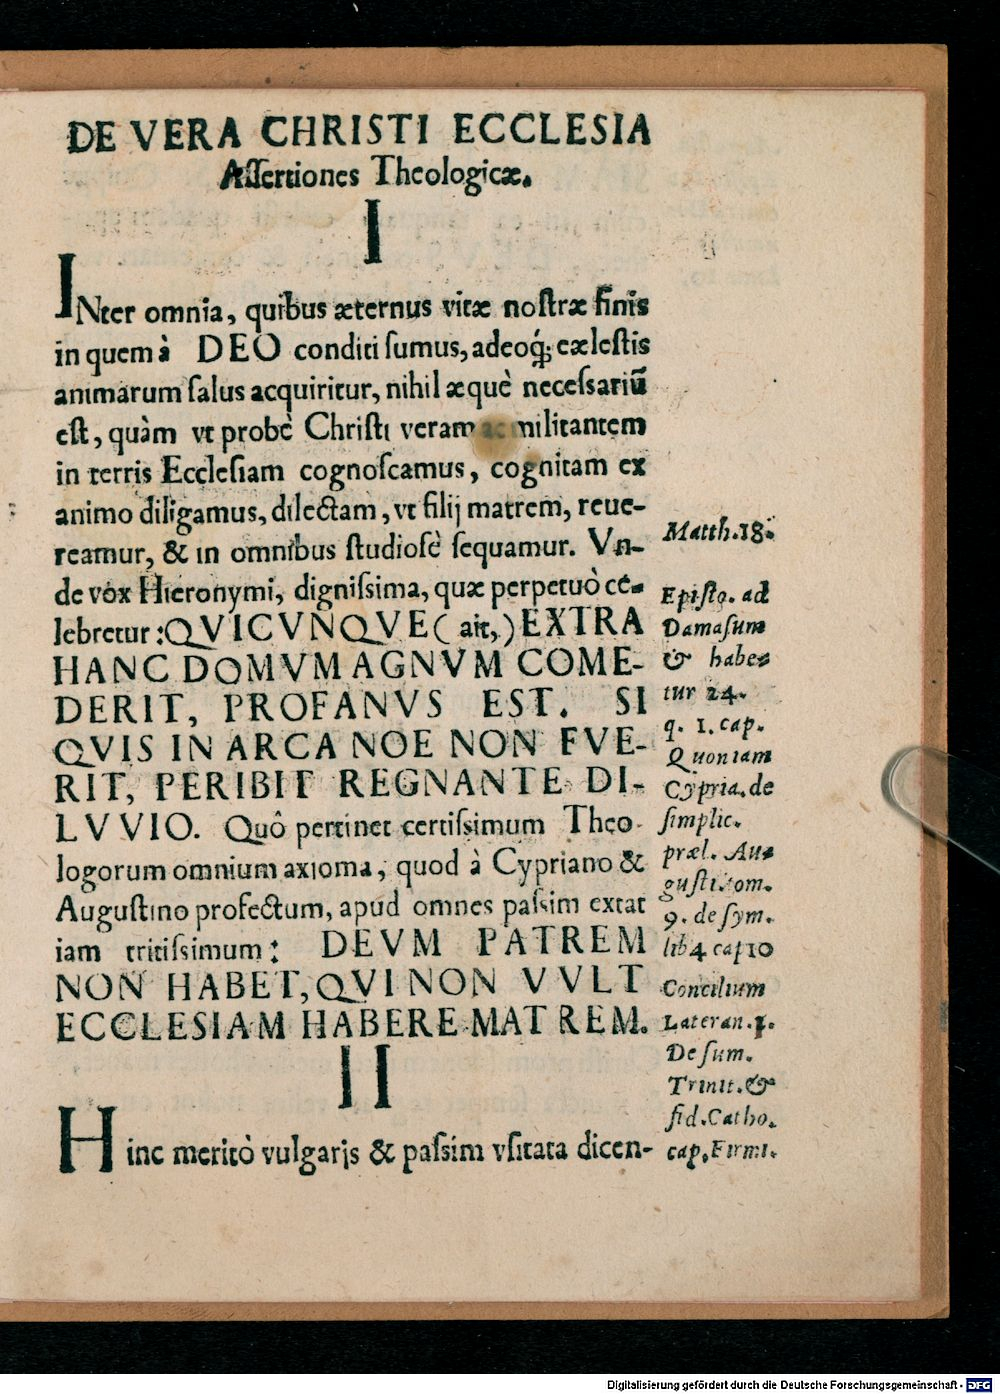 DE VERA CHRISTI ECCLESIA
Aſſertiones Theologicæ.
I
INter omnia, quibus æternus vitæ noſtræ finis
in quem à DEO conditi ſumus, adeoq́; cæleſtis
animarum ſalus acquiritur, nihil æquè neceſsariũ
eſt, quàm vt probè Chriſti veram ac militantem
in terris Eccleſiam cognoſcamus, cognitam ex
animo diligamus, dilectam, vt filij matrem, reue-
reamur, & in omnibus ſtudioſè ſequamur. Vn-
de vox Hieronymi, digniſsima, quæ perpetuò ce-
lebretur: QVICVNQVE (ait,) EXTRA
HANC DOMVM AGNVM COME-
DERIT, PROFANVS EST. SI
QVIS IN ARCA NOE NON FVE-
RIT, PERIBIT REGNANTE DI-
LVVIO. Quô pertinet certiſsimum Theo-
logorum omnium axioma, quod à Cypriano &
Auguſtino profectum, apud omnes paſsim extat
iam tritiſsimum: DEVM PATREM
NON HABET, QVI NON VVLT
ECCLESIAM HABERE MATREM.
II
Hinc meritò vulgaris & paſsim vſitata dicen-
Matth. 18.
Epiſto. ad
Damaſum
& habe-
tur 24.
q. 1. cap.
Quoniam
Cypria. de
ſimplic.
præl. Au-
guſti. tom.
9. de ſym.
lib 4 cap 10
Concilium
Lateran. 1.
De ſum.
Trinit. &
fid. Catho.
cap. Firmi.
Digitalisierung gefördert durch die Deutsche Forschungsgemeinschaft - DFG